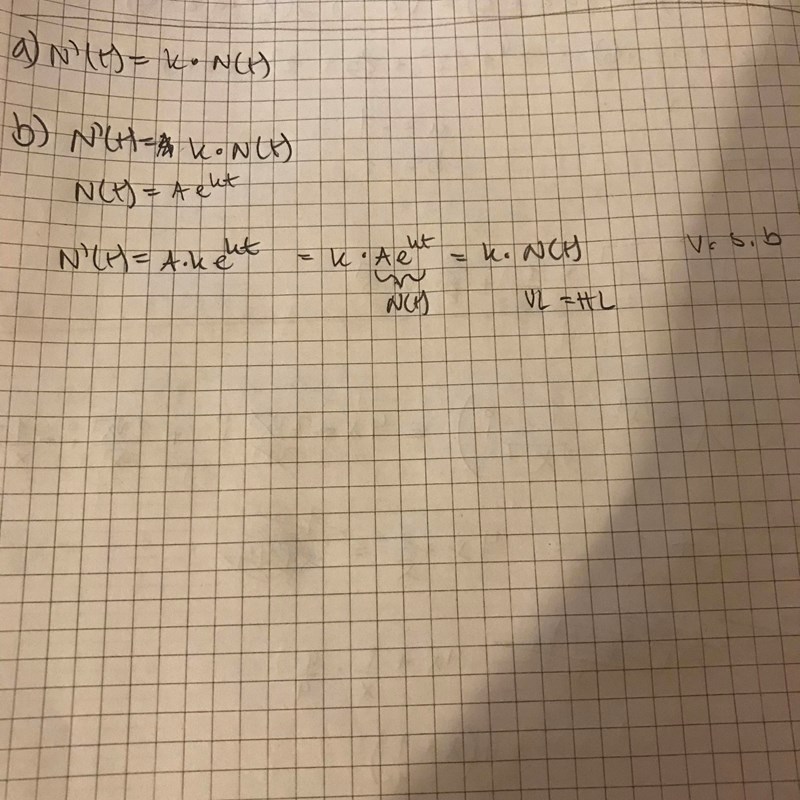 a) N'(t) = k · N(t)
b) N'(t) = k · N(t)
N(t) = A e^kt
N'(t) = A · k e^kt = k · A e^kt = k · N(t) V. S. B
N(t) VL = HL